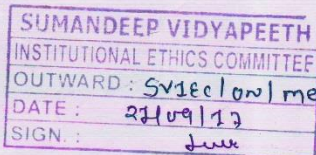 SUMANDEEP VIDYAPEETH
INSTITUTIONAL ETHICS COMMITTEE
OUTWARD : SVIEC/ON/ME
DATE : 27/09/17
SIGN. :